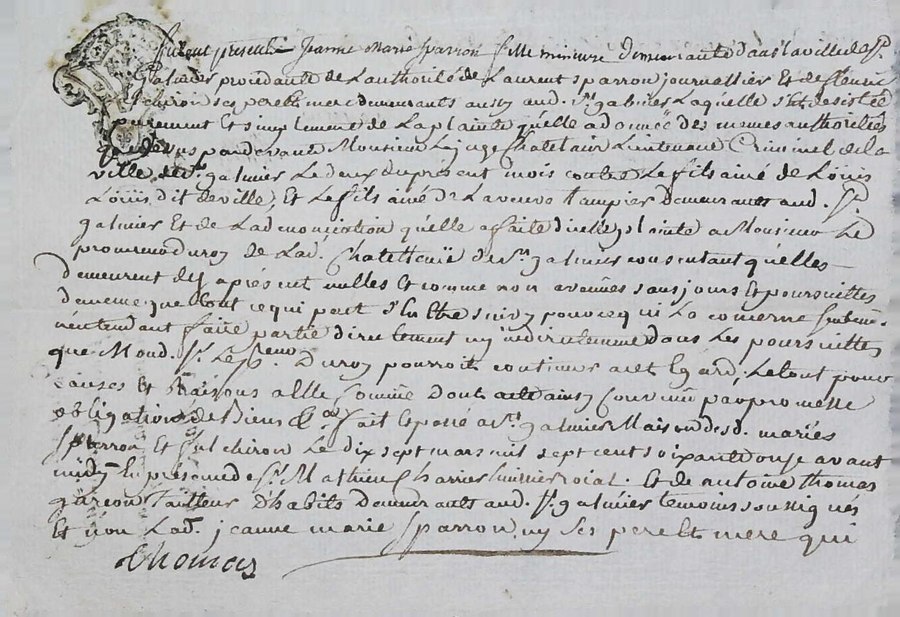 fut ent presente Jeanne Marie Sparron fille mineure demeurante dans la ville de St.
galmier procedante de Lauthorité de Laurent sparron journallier Et de fleurie
fulchiron ses pere Et mere demeurants aussy aud. St. galmier Laquelle s'est desistée
purement Et simplement de La plainte quelle a donnée des memes authorités
que dessus pardevant Monsieur Le juge Chatelain Lieutenant Criminel de la
ville de St. galmier Le deux du present mois contre Le fils ainé de Louis
Louis dit deville, Et Le fils ainé de La veuve tampier demeurants aud. St.
galmier Et de La denonciation quelle a faite d'icelle plainte a Monsieur Le
procureur du roy de Lad. Chatellenie de St. galmier consentant quelles
demeurent des a présent nulles Et comme non avenües sans jours Et poursuittes
de meme que tout ce qui peut s'en Etre suivy pour ce qui La concerne
n'entendant faire partie directement ny indirectement dans Les poursuittes
que Mond. Sr. Le pr. Du roy pourroit continuer a cet Egard, Le tout pour
causes Et Raisons a Elle Connüe Dont acte ainsy Convenu par promesse
obligation de Biens &a. fait Et passé a St. galmier Maison desd. mariés
Sparron Et fulchiron Le dix sept mars mil sept cent soixante onze avant
midy En présence de Sr. Mathieu Charrier huissier roial Et de antoine thomas
garçon Tailleur D'habits demeurants aud. St. galmier temoins soussignés
Et non Lad. jeanne marie Sparron ny ses pere Et mere qui
thomas